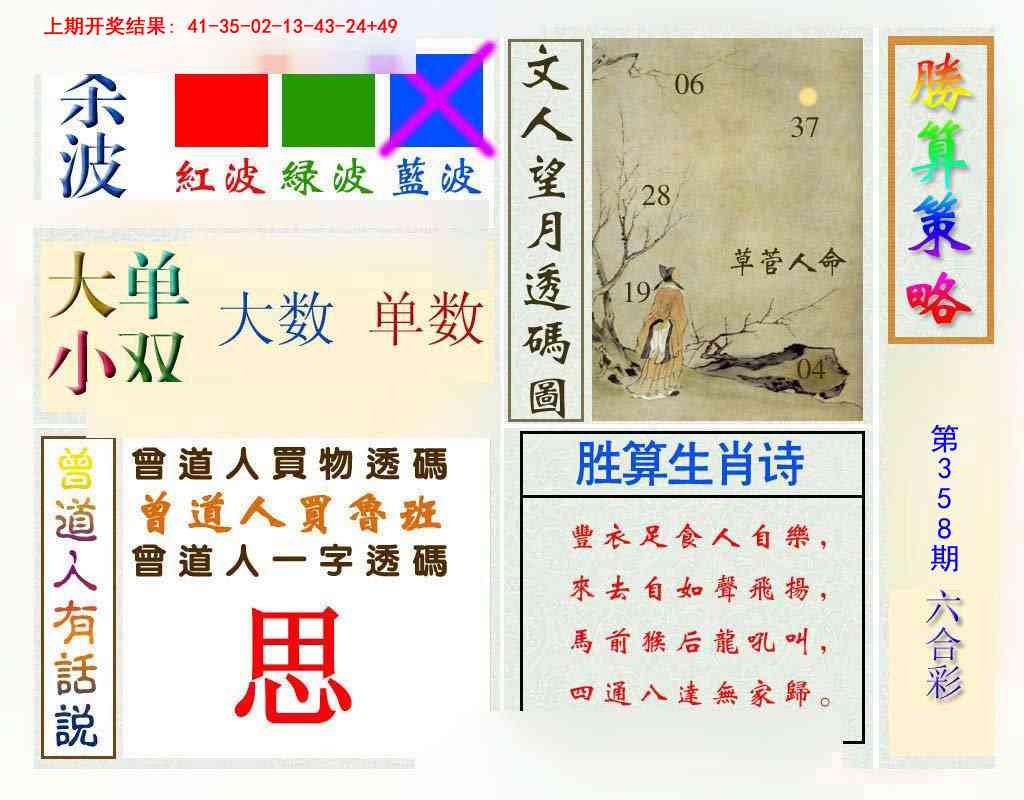 上期开奖结果: 41-35-02-13-43-24+49
杀波
紅波 緑波 藍波
大单
小双
大数 单数
曾道人有話説
曾道人買物透碼
曾道人買魯班
曾道人一字透碼
思
文人望月透碼圖
06
37
28
草菅人命
19
04
胜算生肖诗
豐衣足食人自樂，
來去自如聲飛揚，
馬前猴后龍吼叫，
四通八達無家歸。
勝算策略
第358期
六合彩